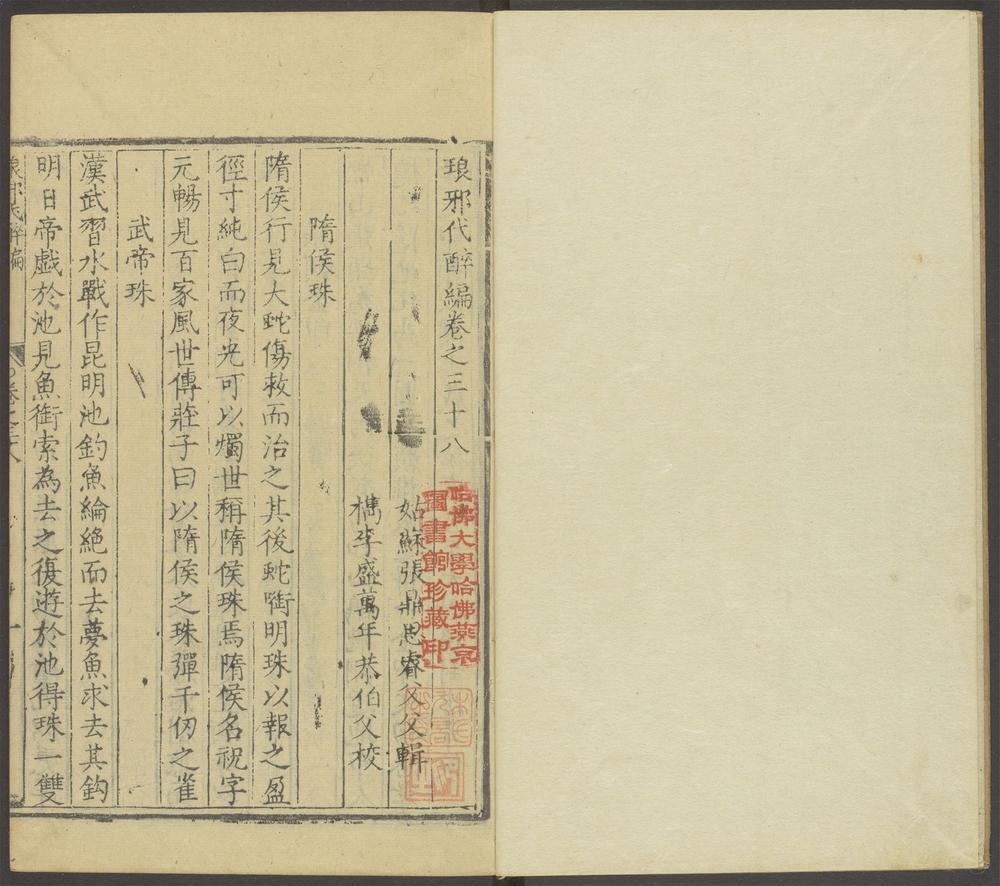 琅邪代醉編卷之三十八
姑蘇張鼎思睿父父輯
檇李盛萬年恭伯父校
隋侯珠
隋侯行見大蛇傷救而治之其後蛇銜明珠以報之盈
徑寸純白而夜光可以燭世稱隋侯珠焉隋侯名祝字
元暢見百家風世傳莊子曰以隋侯之珠彈千仞之雀
武帝珠
漢武習水戰作昆明池釣魚綸絶而去夢魚求去其鈎
明日帝戲於池見魚銜索為去之復遊於池得珠一雙
琅邪代醉編
卷之三十八
哈佛大學哈佛燕京
圖書館珍藏印